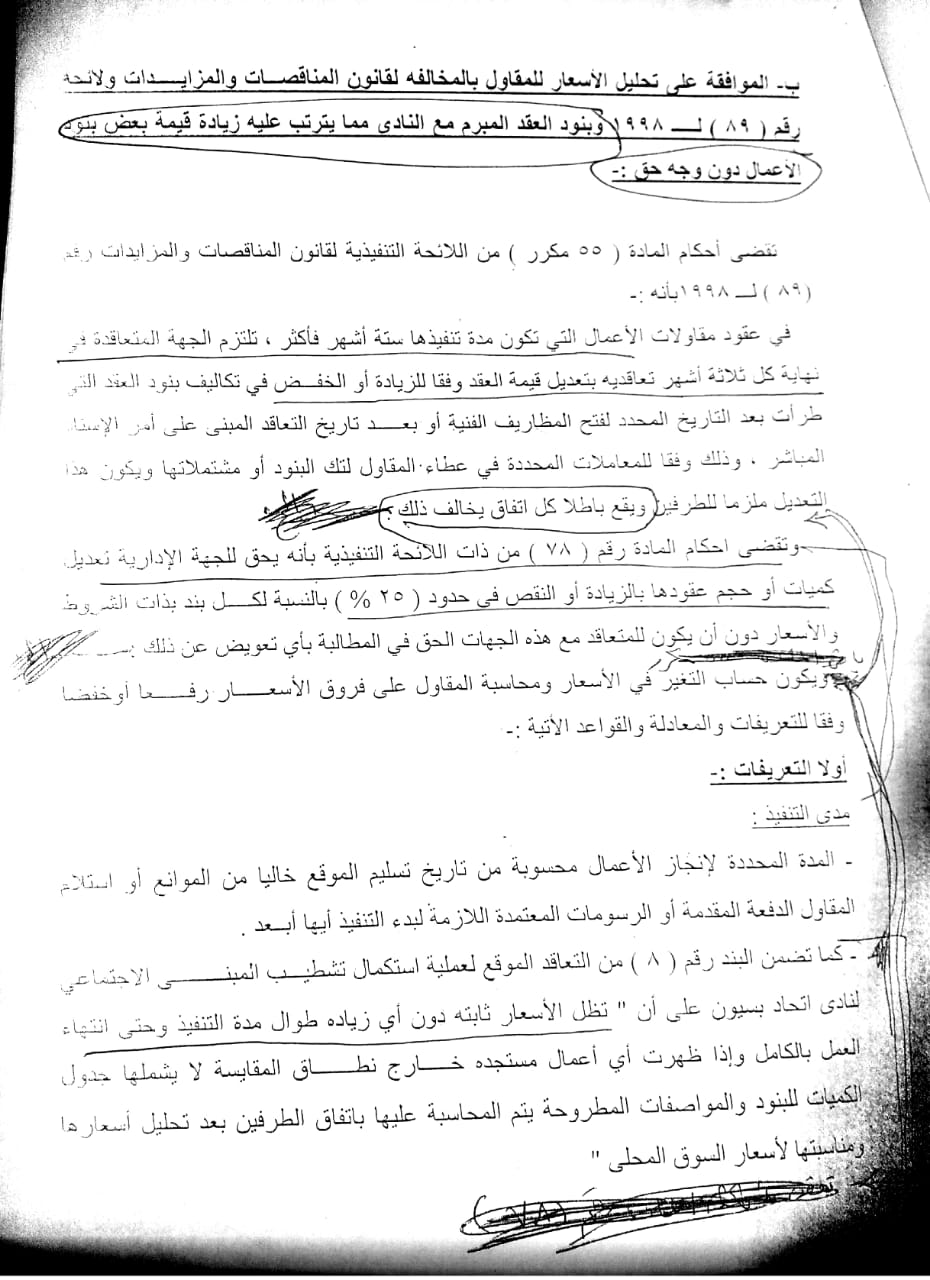 ب- الموافقة على تحليل الأسعار للمقاول بالمخالفه لقانون المناقصات والمزايدات ولائحة
رقم ( ٨٩ ) لـ ١٩٩٨ وبنود العقد المبرم مع النادى مما يترتب عليه زيادة قيمة بعض بنود
الأعمال دون وجه حق :-
تقضى أحكام المادة ( ٥٥ مكرر ) من اللائحة التنفيذية لقانون المناقصات والمزايدات رقم
(٨٩ ) لـ ١٩٩٨بأنه :-
في عقود مقاولات الأعمال التي تكون مدة تنفيذها ستة أشهر فأكثر ، تلتزم الجهة المتعاقدة في
نهاية كل ثلاثة أشهر تعاقديه بتعديل قيمة العقد وفقا للزيادة أو الخفض في تكاليف بنود العقد التي
طرأت بعد التاريخ المحدد لفتح المظاريف الفنية أو بعد تاريخ التعاقد المبنى على أمر الإسناد
المباشر ، وذلك وفقا للمعاملات المحددة في عطاء المقاول لتك البنود أو مشتملاتها ويكون هذا
التعديل ملزما للطرفين ويقع باطلا كل اتفاق يخالف ذلك .
وتقضى احكام المادة رقم ( ٧٨ ) من ذات اللائحة التنفيذية بأنه يحق للجهة الإدارية تعديل
كميات أو حجم عقودها بالزيادة أو النقص فى حدود ( ٢٥ % ) بالنسبة لكل بند بذات الشروط
والأسعار دون أن يكون للمتعاقد مع هذه الجهات الحق في المطالبة بأي تعويض عن ذلك :-
ويكون حساب التغير في الأسعار ومحاسبة المقاول على فروق الأسعار رفعا أوخفضا
وفقا للتعريفات والمعادلة والقواعد الأتية :-
أولا التعريفات :-
مدى التنفيذ :
- المدة المحددة لإنجاز الأعمال محسوبة من تاريخ تسليم الموقع خاليا من الموانع أو استلام
المقاول الدفعة المقدمة أو الرسومات المعتمدة اللازمة لبدء التنفيذ أيها أبعد .
- كما تضمن البند رقم ( ٨ ) من التعاقد الموقع لعملية استكمال تشطيب المبنى الاجتماعي
لنادى اتحاد بسيون على أن " تظل الأسعار ثابته دون أي زياده طوال مدة التنفيذ وحتى انتهاء
العمل بالكامل وإذا ظهرت أي أعمال مستجده خارج نطاق المقايسة لا يشملها جدول
الكميات للبنود والمواصفات المطروحة يتم المحاسبة عليها باتفاق الطرفين بعد تحليل أسعارها
ومناسبتها لأسعار السوق المحلى "